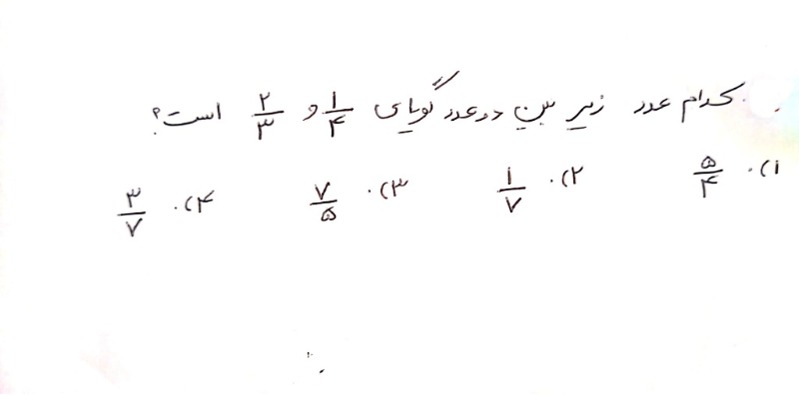 کدام عدد زیر بین دو عدد گویای ۱/۴ و ۲/۳ است؟
۱). ۵/۴ ۲). ۱/۷ ۳). ۷/۵ ۴). ۳/۷